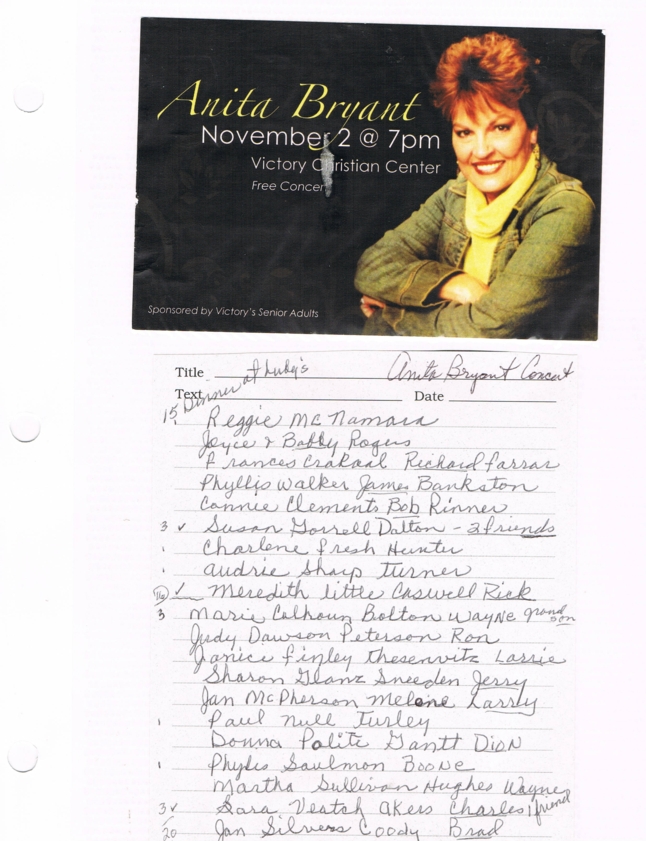 Anita Bryant
November 2 @ 7pm
Victory Christian Center
Free Concert
Sponsored by Victory's Senior Adults
Title at Luby's Anita Bryant Concert
Text Dinner Date
15 Reggie McNamara
Joyce & Bobby Rogers
Frances Richard Farrar
Phyllis Walker James Bankston
Connie Clements Bob Rinner
3 ✓ Susan Gorrell Dalton - 2 friends
1 Charlene Fresh Hunter
1 Audrie Sharp Turner
(16) ✓ Meredith Little Caswell Rick
3 Marie Calhoun Bolton Wayne grand son
Judy Dawson Peterson Ron
Janice Finley Thesenvitz Larrie
Sharon Glanz Sneeden Jerry
Jan McPherson Melone Larry
1 Paul Null Turley
Donna Polite Gantt Dion
1 Phylis Saulmon Boone
Martha Sullivan Hughes Wayne
3 ✓ Sara Veatch Akers Charles 1 friend
20 Jan Silvers Coody Brad